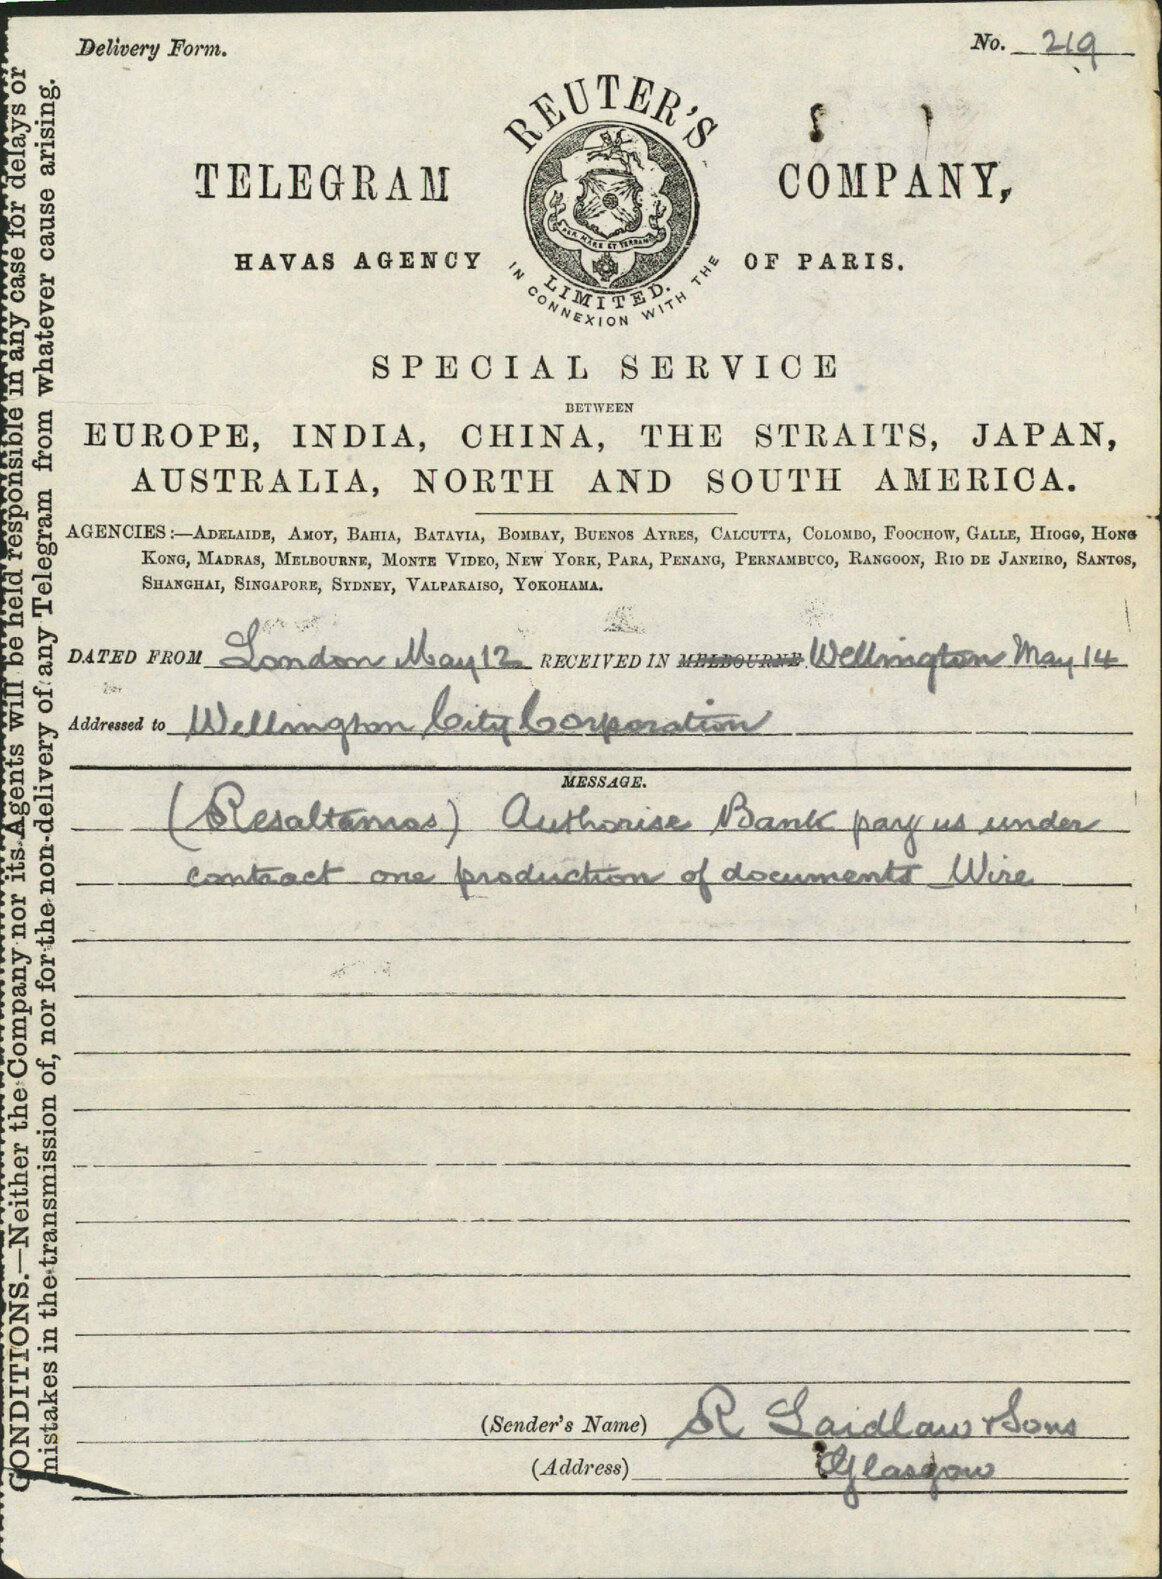 Delivery Form.
No. 219
REUTER'S
TELEGRAM COMPANY,
PER MARE ET TERRAM
LIMITED.
IN CONNEXION WITH THE
HAVAS AGENCY OF PARIS.
SPECIAL SERVICE
BETWEEN
EUROPE, INDIA, CHINA, THE STRAITS, JAPAN,
AUSTRALIA, NORTH AND SOUTH AMERICA.
AGENCIES:—ADELAIDE, AMOY, BAHIA, BATAVIA, BOMBAY, BUENOS AYRES, CALCUTTA, COLOMBO, FOOCHOW, GALLE, HIOGO, HONG
KONG, MADRAS, MELBOURNE, MONTE VIDEO, NEW YORK, PARA, PENANG, PERNAMBUCO, RANGOON, RIO DE JANEIRO, SANTOS,
SHANGHAI, SINGAPORE, SYDNEY, VALPARAISO, YOKOHAMA.
DATED FROM London May 12 RECEIVED IN MELBOURNE Wellington May 14
Addressed to Wellington City Corporation
MESSAGE.
(Resaltamos) Authorise Bank pay us under
contract one production of documents Wire
(Sender's Name) R Laidlaw & Sons
(Address) Glasgow
CONDITIONS.—Neither the Company nor its Agents will be held responsible in any case for delays or
mistakes in the transmission of, nor for the non-delivery of any Telegram from whatever cause arising.